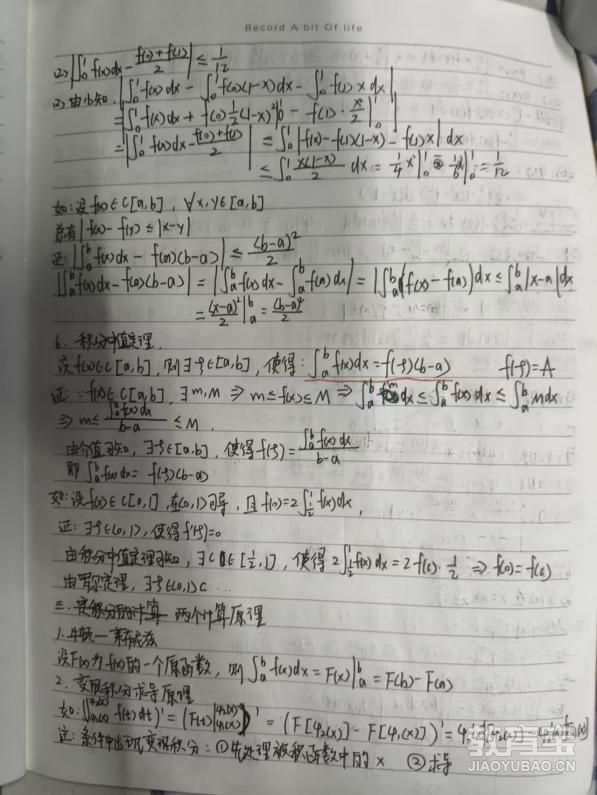 Record A bit Of life
(2) |∫₀¹ f(x)dx - (f(0)+f(1))/2| ≤ 1/12
(2) 由(1)知, |∫₀¹ f(x)dx - ∫₀¹ f(0)(1-x)dx - ∫₀¹ f(1)xdx|
= |∫₀¹ f(x)dx + f(0)½(1-x)²|₀¹ - f(1)·x²/2|₀¹|
= |∫₀¹ f(x)dx - (f(0)+f(1))/2| ≤ ∫₀¹ |f(x)-f(0)(1-x) - f(1)x| dx
≤ ∫₀¹ x(1-x)/2 dx = ¼x²|₀¹ - ⅙x³|₀¹ = 1/12
如: 设 f(x)∈C[a,b], ∀x,y∈[a,b]
总有 |f(x)-f(y)| ≤ |x-y|
证: |∫ₐᵇ f(x)dx - f(a)(b-a)| ≤ (b-a)²/2
|∫ₐᵇ f(x)dx - f(a)(b-a)| = |∫ₐᵇ f(x)dx - ∫ₐᵇ f(a)dx| = |∫ₐᵇ (f(x)-f(a))dx| ≤ ∫ₐᵇ |x-a|dx
= (x-a)²/2|ₐᵇ = (b-a)²/2
6. 积分中值定理.
设 f(x)∈C[a,b], 则∃ξ∈[a,b], 使得: ∫ₐᵇ f(x)dx = f(ξ)(b-a) f(ξ)=A
证: ∵f(x)∈C[a,b], ∃m,M ⇒ m≤f(x)≤M ⇒ ∫ₐᵇ mdx ≤ ∫ₐᵇ f(x)dx ≤ ∫ₐᵇ Mdx
⇒ m ≤ ∫ₐᵇ f(x)dx/(b-a) ≤ M.
由介值可知, ∃ξ∈[a,b], 使得 f(ξ) = ∫ₐᵇ f(x)dx/(b-a)
即 ∫ₐᵇ f(x)dx = f(ξ)(b-a)
如: 设 f(x)∈C[0,1], 在(0,1)可导, 且 f(0)=2∫½¹ f(x)dx,
证: ∃ξ∈(0,1), 使得 f'(ξ)=0
由积分中值定理可知, ∃c∈[½,1], 使得 2∫½¹ f(x)dx = 2f(c)·½ ⇒ f(0)=f(c)
由罗尔定理, ∃ξ∈(0,1)⊂ …
三. 两个计算原理
1. 牛顿—莱布尼兹
设F(x)为f(x)的一个原函数, 则 ∫ₐᵇ f(x)dx = F(x)|ₐᵇ = F(b)-F(a)
2. 变限积分求导原理
如: (∫ f(t)dt)' = (F(t)|)' = (F[φ₂(x)] - F[φ₁(x)])' = φ₂'f[φ₂(x)] - φ₁'(x)f[φ₁(x)]
注: 条件中出现变限积分: ①先处理被积函数中的x ②求导
教育宝
JIAOYUBAO.CN